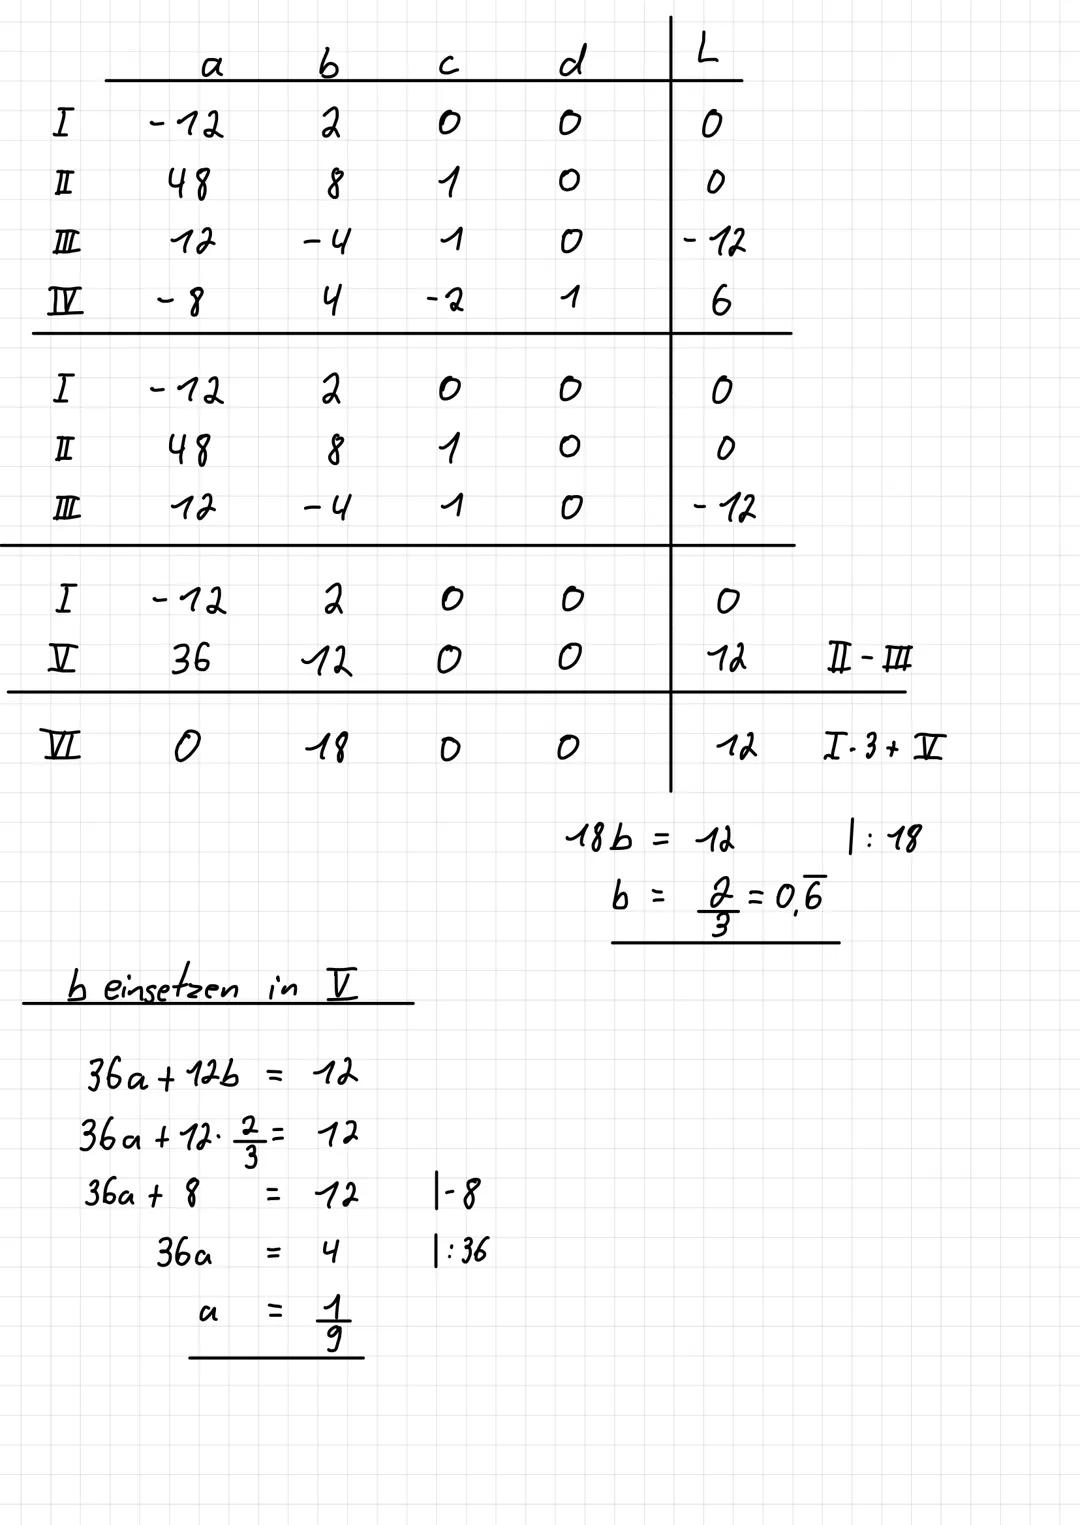 a b c d L
I -12 2 0 0 0
II 48 8 1 0 0
III 12 -4 1 0 -12
IV -8 4 -2 1 6
I -12 2 0 0 0
II 48 8 1 0 0
III 12 -4 1 0 -12
I -12 2 0 0 0
V 36 12 0 0 12 II - III
VI 0 18 0 0 12 I · 3 + V
18b = 12 |: 18
b = 2/3 = 0,6̅
b einsetzen in V
36a + 12b = 12
36a + 12 · 2/3 = 12
36a + 8 = 12 |-8
36a = 4 |:36
a = 1/9